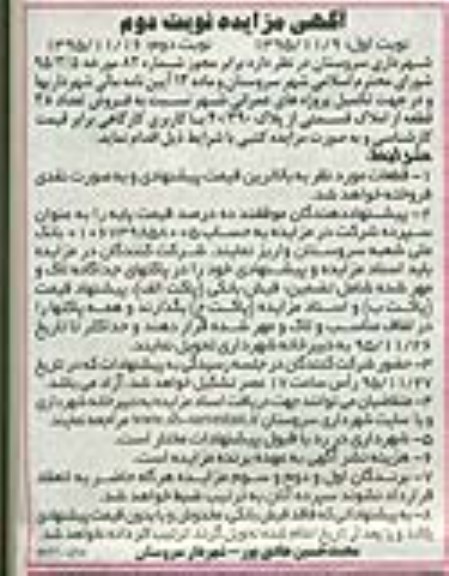 آگهی مزایده نوبت دوم
نوبت اول: ۱۳۹۵/۱۱/۹ نوبت دوم: ۱۳۹۵/۱۱/۱۶
شهرداری سروستان در نظر دارد برابر مجوز شماره ۸۲ مورخه ۹۵/۳/۵
شورای محترم اسلامی شهر سروستان و ماده ۱۳ آیین نامه مالی شهرداریها
و در جهت تکمیل پروژه های عمرانی شهر نسبت به فروش تعداد ۲۵
قطعه از املاک قسمتی از پلاک با کاربری کارگاهی برابر قیمت
کارشناسی و به صورت مزایده کتبی با شرایط ذیل اقدام نماید.
شرایط:
۱- قطعات مورد نظر به بالاترین قیمت پیشنهادی و به صورت نقدی
فروخته خواهد شد.
۲- پیشنهاددهندگان موظفند ده درصد قیمت پایه را به عنوان
سپرده شرکت در مزایده به حساب بانک
ملی شعبه سروستان واریز نمایند. شرکت کنندگان در مزایده
باید اسناد مزایده و پیشنهادی خود را در پاکتهای جداگانه لاک و
مهر شده شامل تضمین، فیش بانکی (پاکت الف)، پیشنهاد قیمت
(پاکت ب) و اسناد مزایده (پاکت ج) بگذارند و همه پاکتها را
در لفاف مناسب و لاک و مهر شده قرار دهند و حداکثر تا تاریخ
۹۵/۱۱/۲۶ به دبیرخانه شهرداری تحویل نمایند.
۳- حضور شرکت کنندگان در جلسه رسیدگی به پیشنهادات که در تاریخ
۹۵/۱۱/۲۷ رأس ساعت ۱۷ عصر تشکیل خواهد شد، آزاد می باشد.
۴- متقاضیان می توانند جهت دریافت اسناد مزایده به دبیرخانه شهرداری
و یا سایت شهرداری سروستان مراجعه نمایند.
۵- شهرداری در رد یا قبول پیشنهادات مختار است.
۶- هزینه نشر آگهی به عهده برنده مزایده است.
۷- برندگان اول و دوم و سوم مزایده هرگاه حاضر به انعقاد
قرارداد نشوند سپرده آنان به ترتیب ضبط خواهد شد.
۸- به پیشنهاداتی که فاقد فیش بانکی، مخدوش و یا بدون قیمت پیشنهادی
باشد و یا بعد از تاریخ اعلام شده تحویل گردد ترتیب اثر داده نخواهد شد.
محمدحسین هادی پور - شهردار سروستان